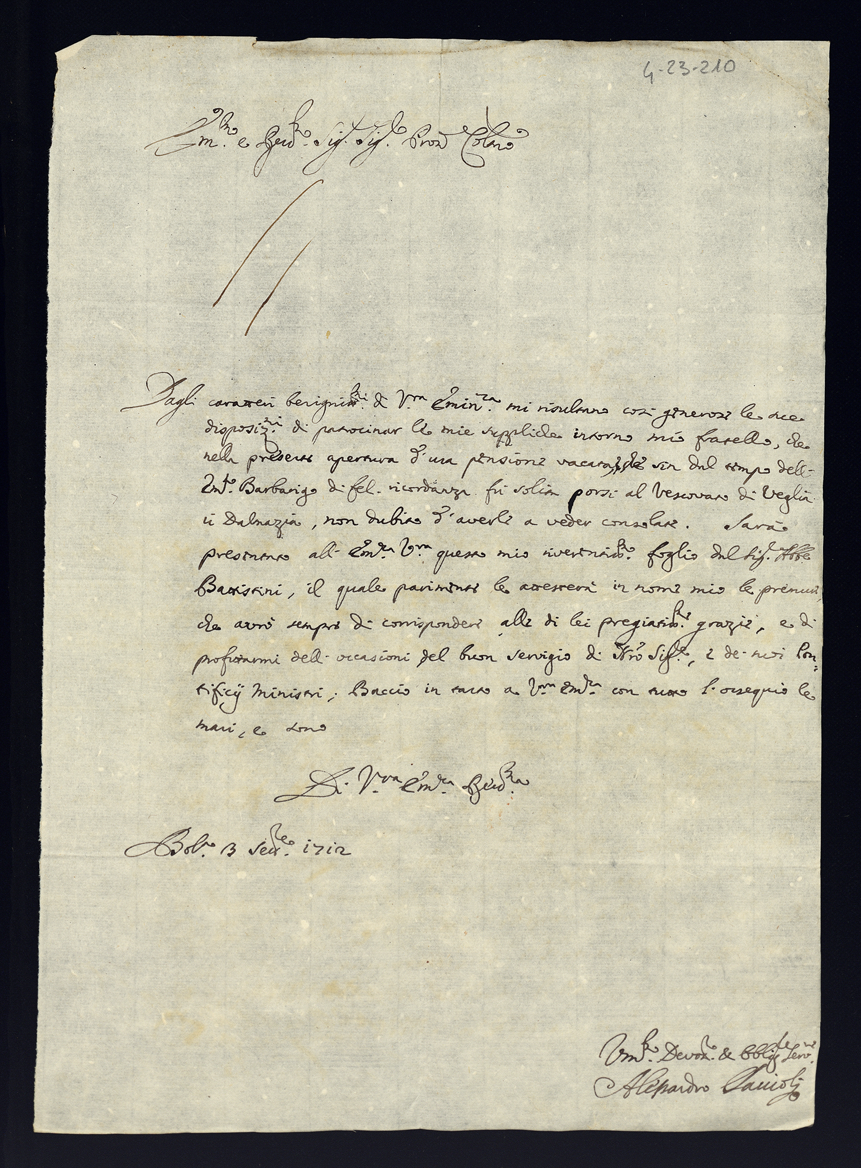 4-23-210
Em.mo e Rev.mo Sig.r Sig.r Pron
Dagli caratteri benigniss.mi di V.ra Emin.za mi risultano così generose le sue
disposiz.ni di patrocinar le mie suppliche intorno mio fratello, che
nella presente apertura d'una pensione sin dal tempo dell'
Em.o Barbarigo di fel. ricordanza fù solita porsi al Vescovato di Veglia
in Dalmazia, non dubito d'averle a veder consolate. Sarà
presentato all' Em.za V.ra questo mio riverentiss.o foglio dal Sig.r Abbe
Battistini, il quale parimente le attesterà in nome mio le premure,
che avrò sempre di corrispondere alle di lei pregiatiss.e grazie, e di
profittarmi dell' occasioni del buon servigio di Nro Sig.re, e de suoi Pon-
tificij Ministri; Baccio in tanto a V.ra Em.za con tutto l'ossequio le
mani, e sono
Di V.ra Em.za Rev.ma
Bol.a 3 Sett.re 1712
Um.o Devot.o et Obblig.
Alessandro